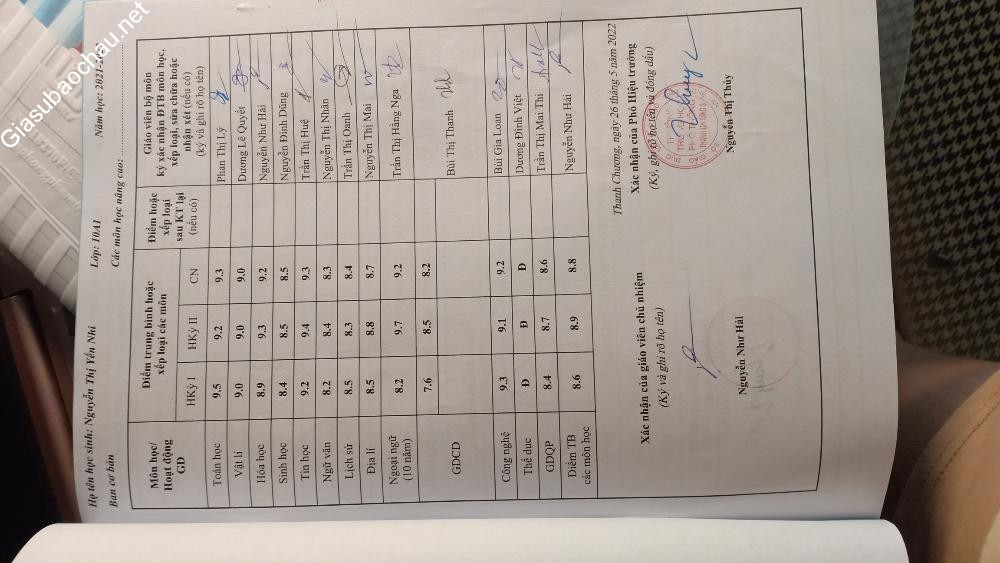 Giasubaochau.net
Họ tên học sinh: Nguyễn Thị Yến Nhi Lớp: 10A1 Năm học: 2021-2022
Ban cơ bản Các môn học nâng cao:
Môn học/ Hoạt động GD Điểm trung bình hoặc xếp loại các môn Điểm hoặc xếp loại sau KT lại (nếu có) Giáo viên bộ môn ký xác nhận ĐTB môn học, xếp loại, sửa chữa hoặc nhận xét (nếu có) (ký và ghi rõ họ tên)
HKỳ I HKỳ II CN
Toán học 9.5 9.2 9.3 Phan Thị Lý
Vật lí 9.0 9.0 9.0 Dương Lê Quyết
Hóa học 8.9 9.3 9.2 Nguyễn Như Hải
Sinh học 8.4 8.5 8.5 Nguyễn Đình Dũng
Tin học 9.2 9.4 9.3 Trần Thị Huệ
Ngữ văn 8.2 8.4 8.3 Nguyễn Thị Nhân
Lịch sử 8.5 8.3 8.4 Trần Thị Oanh
Địa lí 8.5 8.8 8.7 Nguyễn Thị Mai
Ngoại ngữ (10 năm) 8.2 9.7 9.2 Trần Thị Hằng Nga
GDCD 7.6 8.5 8.2 Bùi Thị Thanh
Công nghệ 9.3 9.1 9.2 Bùi Gia Loan
Thể dục Đ Đ Đ Dương Đình Việt
GDQP 8.4 8.7 8.6 Trần Thị Mai Thi
Điểm TB các môn học 8.6 8.9 8.8 Nguyễn Như Hải
Thanh Chương, ngày 26 tháng 5 năm 2022
Xác nhận của giáo viên chủ nhiệm Xác nhận của Phó Hiệu trưởng
(Ký và ghi rõ họ tên) (Ký, ghi rõ họ tên và đóng dấu)
Nguyễn Như Hải Nguyễn Thị Thủy